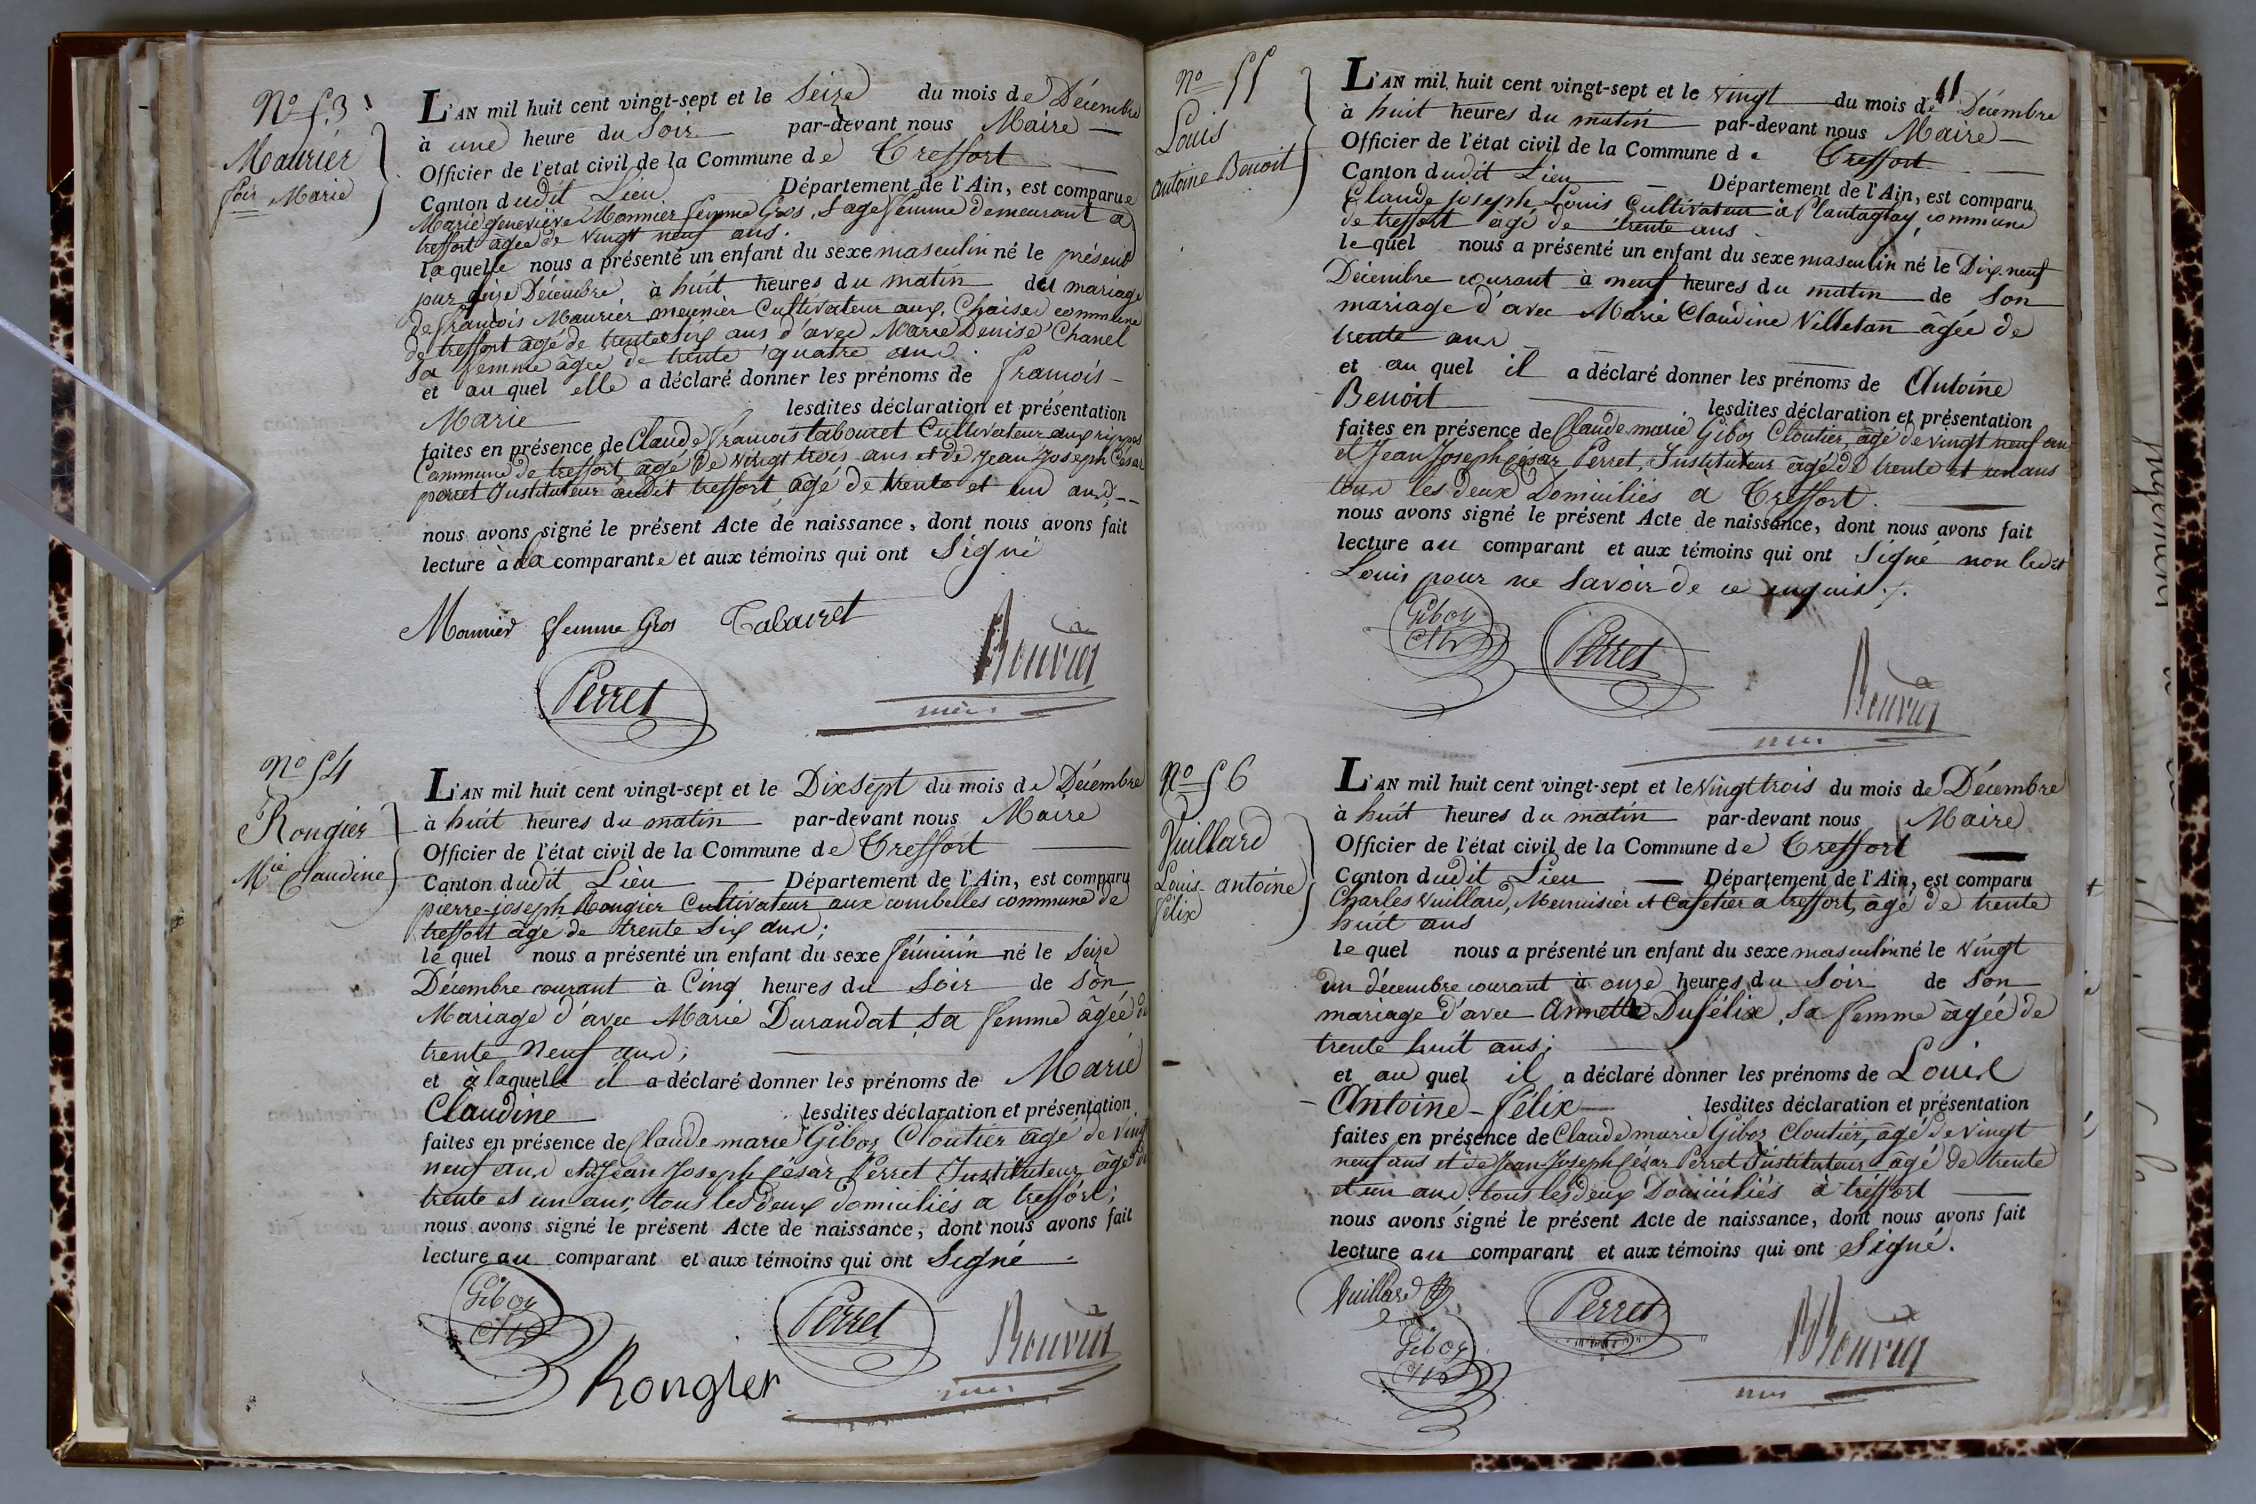 No 53
Maurier
fois Marie
L'AN mil huit cent vingt-sept et le Seize du mois de Décembre
à une heure du Soir par-devant nous Maire
Officier de l'état civil de la Commune de Treffort
Canton dudit Lieu Département de l'Ain, est comparue
Marie geneviève Monnier femme Gros, Sage femme demeurant a
treffort âgée de vingt neuf ans.
laquelle nous a présenté un enfant du sexe masculin né le présent
jour seize Décembre à huit heures du matin du mariage
de françois Maurier meunier Cultivateur aux Chaises commune
de treffort âgé de trente six ans d'avec Marie Denise Chanel
sa femme âgée de trente quatre ans.
et au quel elle a déclaré donner les prénoms de françois
Marie lesdites déclaration et présentation
faites en présence de Claude françois tabouret Cultivateur aux rippes
Commune de treffort âgé de vingt trois ans et de Jean Joseph César
perret Instituteur audit treffort âgé de trente et un ans
nous avons signé le présent Acte de naissance, dont nous avons fait
lecture à la comparante et aux témoins qui ont Signé
Monnier femme Gros Tabouret
Perret Bouvier
No 54
Rongier
Mie Claudine
L'AN mil huit cent vingt-sept et le Dix Sept du mois de Décembre
à huit heures du matin par-devant nous Maire
Officier de l'état civil de la Commune de Treffort
Canton dudit Lieu Département de l'Ain, est comparu
pierre-joseph Rongier Cultivateur aux combelles commune de
treffort âgé de trente Six ans;
lequel nous a présenté un enfant du sexe féminin né le Seize
Décembre courant à Cinq heures du Soir de son
Mariage d'avec Marie Durandat sa femme âgée de
trente neuf ans;
et à laquelle il a déclaré donner les prénoms de Marie
Claudine lesdites déclaration et présentation
faites en présence de Claude marie Giboz Cloutier âgé de vingt
neuf ans et Jean Joseph César Perret Instituteur âgé de
trente et un ans, tous les deux domiciliés a treffort;
nous avons signé le présent Acte de naissance, dont nous avons fait
lecture au comparant et aux témoins qui ont Signé
Giboz Perret Bouvier
Rongier
No 55
Louis
antoine Benoit
L'AN mil huit cent vingt-sept et le vingt du mois de Décembre
à huit heures du matin par-devant nous Maire
Officier de l'état civil de la Commune de Treffort
Canton dudit Lieu Département de l'Ain, est comparu
Claude joseph Louis Cultivateur à Plantaglay commune
de treffort âgé de trente ans
lequel nous a présenté un enfant du sexe masculin né le Dix neuf
Décembre courant à neuf heures du matin de Son
mariage d'avec Marie Claudine Villetan âgée de
trente ans
et au quel il a déclaré donner les prénoms de Antoine
Benoit lesdites déclaration et présentation
faites en présence de Claude marie Giboz Cloutier, âgé de vingt neuf ans
et Jean Joseph César Perret, Instituteur âgé de trente et un ans
tous les deux Domiciliés à Treffort.
nous avons signé le présent Acte de naissance, dont nous avons fait
lecture au comparant et aux témoins qui ont Signé non ledit
Louis pour ne Savoir de ce enquis.
Giboz Perret
Bouvier
No 56
Vuillard
Louis antoine
félix
L'AN mil huit cent vingt-sept et le Vingt trois du mois de Décembre
à huit heures du matin par-devant nous Maire
Officier de l'état civil de la Commune de Treffort
Canton dudit Lieu Département de l'Ain, est comparu
Charles Vuillard, Menuisier et Cafetier a treffort, âgé de trente
huit ans
lequel nous a présenté un enfant du sexe masculin né le vingt
un décembre courant à onze heures du Soir de Son
mariage d'avec Annette Dufélix, Sa femme âgée de
trente huit ans;
et au quel il a déclaré donner les prénoms de Louis
Antoine-félix lesdites déclaration et présentation
faites en présence de Claude marie Giboz Cloutier, âgé de vingt
neuf ans et de Jean Joseph César Perret Instituteur âgé de trente
et un ans. tous les deux Domiciliés à treffort
nous avons signé le présent Acte de naissance, dont nous avons fait
lecture au comparant et aux témoins qui ont Signé.
Vuillard Perret Bouvier
Giboz